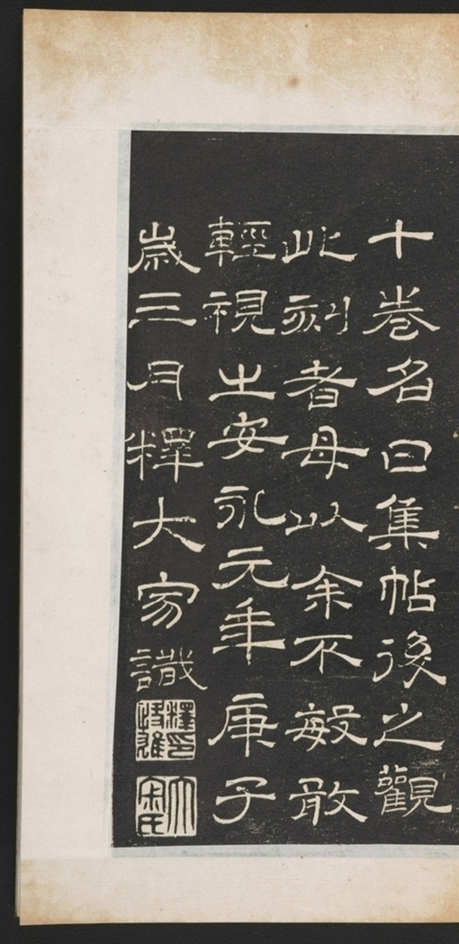 十卷名曰集帖後之觀
此刻者母以余不敏敢
輕視之安永元年庚子
歲三月釋大家識